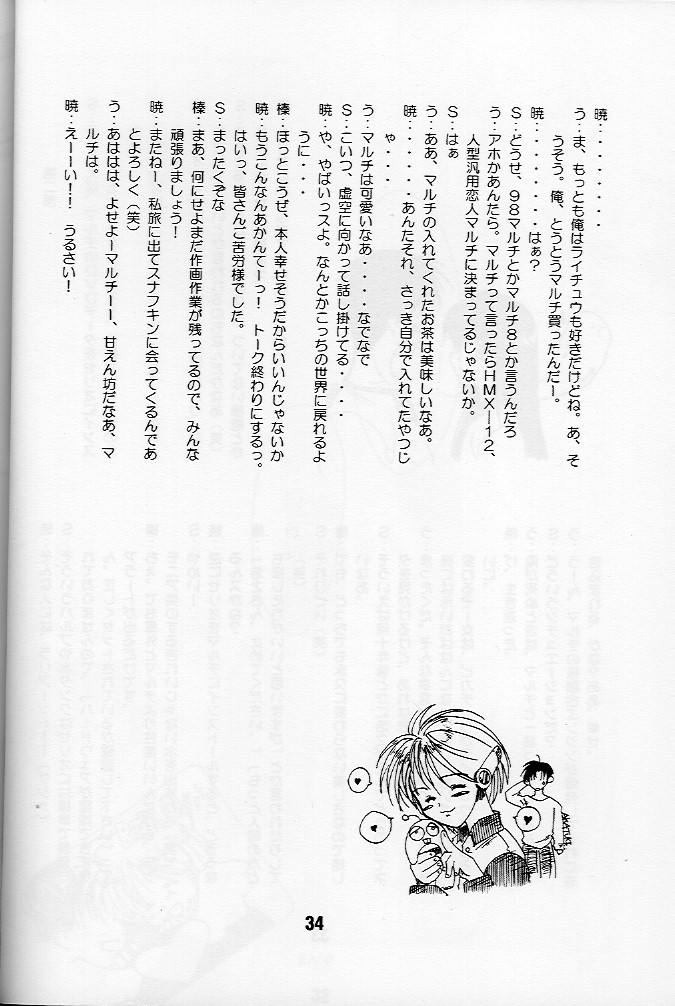 暁：・・・・・・・
う：ま、もっとも俺はライチュウも好きだけどね。あ、そ
うそう。俺、とうとうマルチ買ったんだー。
暁：・・・・・・・はぁ？
S：どうせ、９８マルチとかマルチ８とか言うんだろ
う：アホかあんたら。マルチって言ったらHMX—12、
人型汎用恋人マルチに決まってるじゃないか。
S：はぁ
う：ああ、マルチの入れてくれたお茶は美味しいなあ。
暁：・・・・・・あんたそれ、さっき自分で入れてたやつじ
ゃ・・・
う：マルチは可愛いなあ・・・・なでなで
S：こいつ、虚空に向かって話し掛けてる・・・・
暁：や、やばいっスよ。なんとかこっちの世界に戻れるよ
うに・・・
榛：ほっとこうぜ、本人幸せそうだからいいんじゃないか
暁：もうこんなんあかんてーっ！　トーク終わりにするっ。
はいっ、皆さんご苦労様でした。
S：まったくぞな
榛：まあ、何にせよまだ作画作業が残ってるので、みんな
頑張りましょう！
暁：またねー、私旅に出てスナフキンに会ってくるんであ
とよろしく（笑）
う：あははは、よせよ〜マルチー、甘えん坊だなあ、マ
ルチは。
暁：えーーい！！　うるさい！
AKATUKI
34